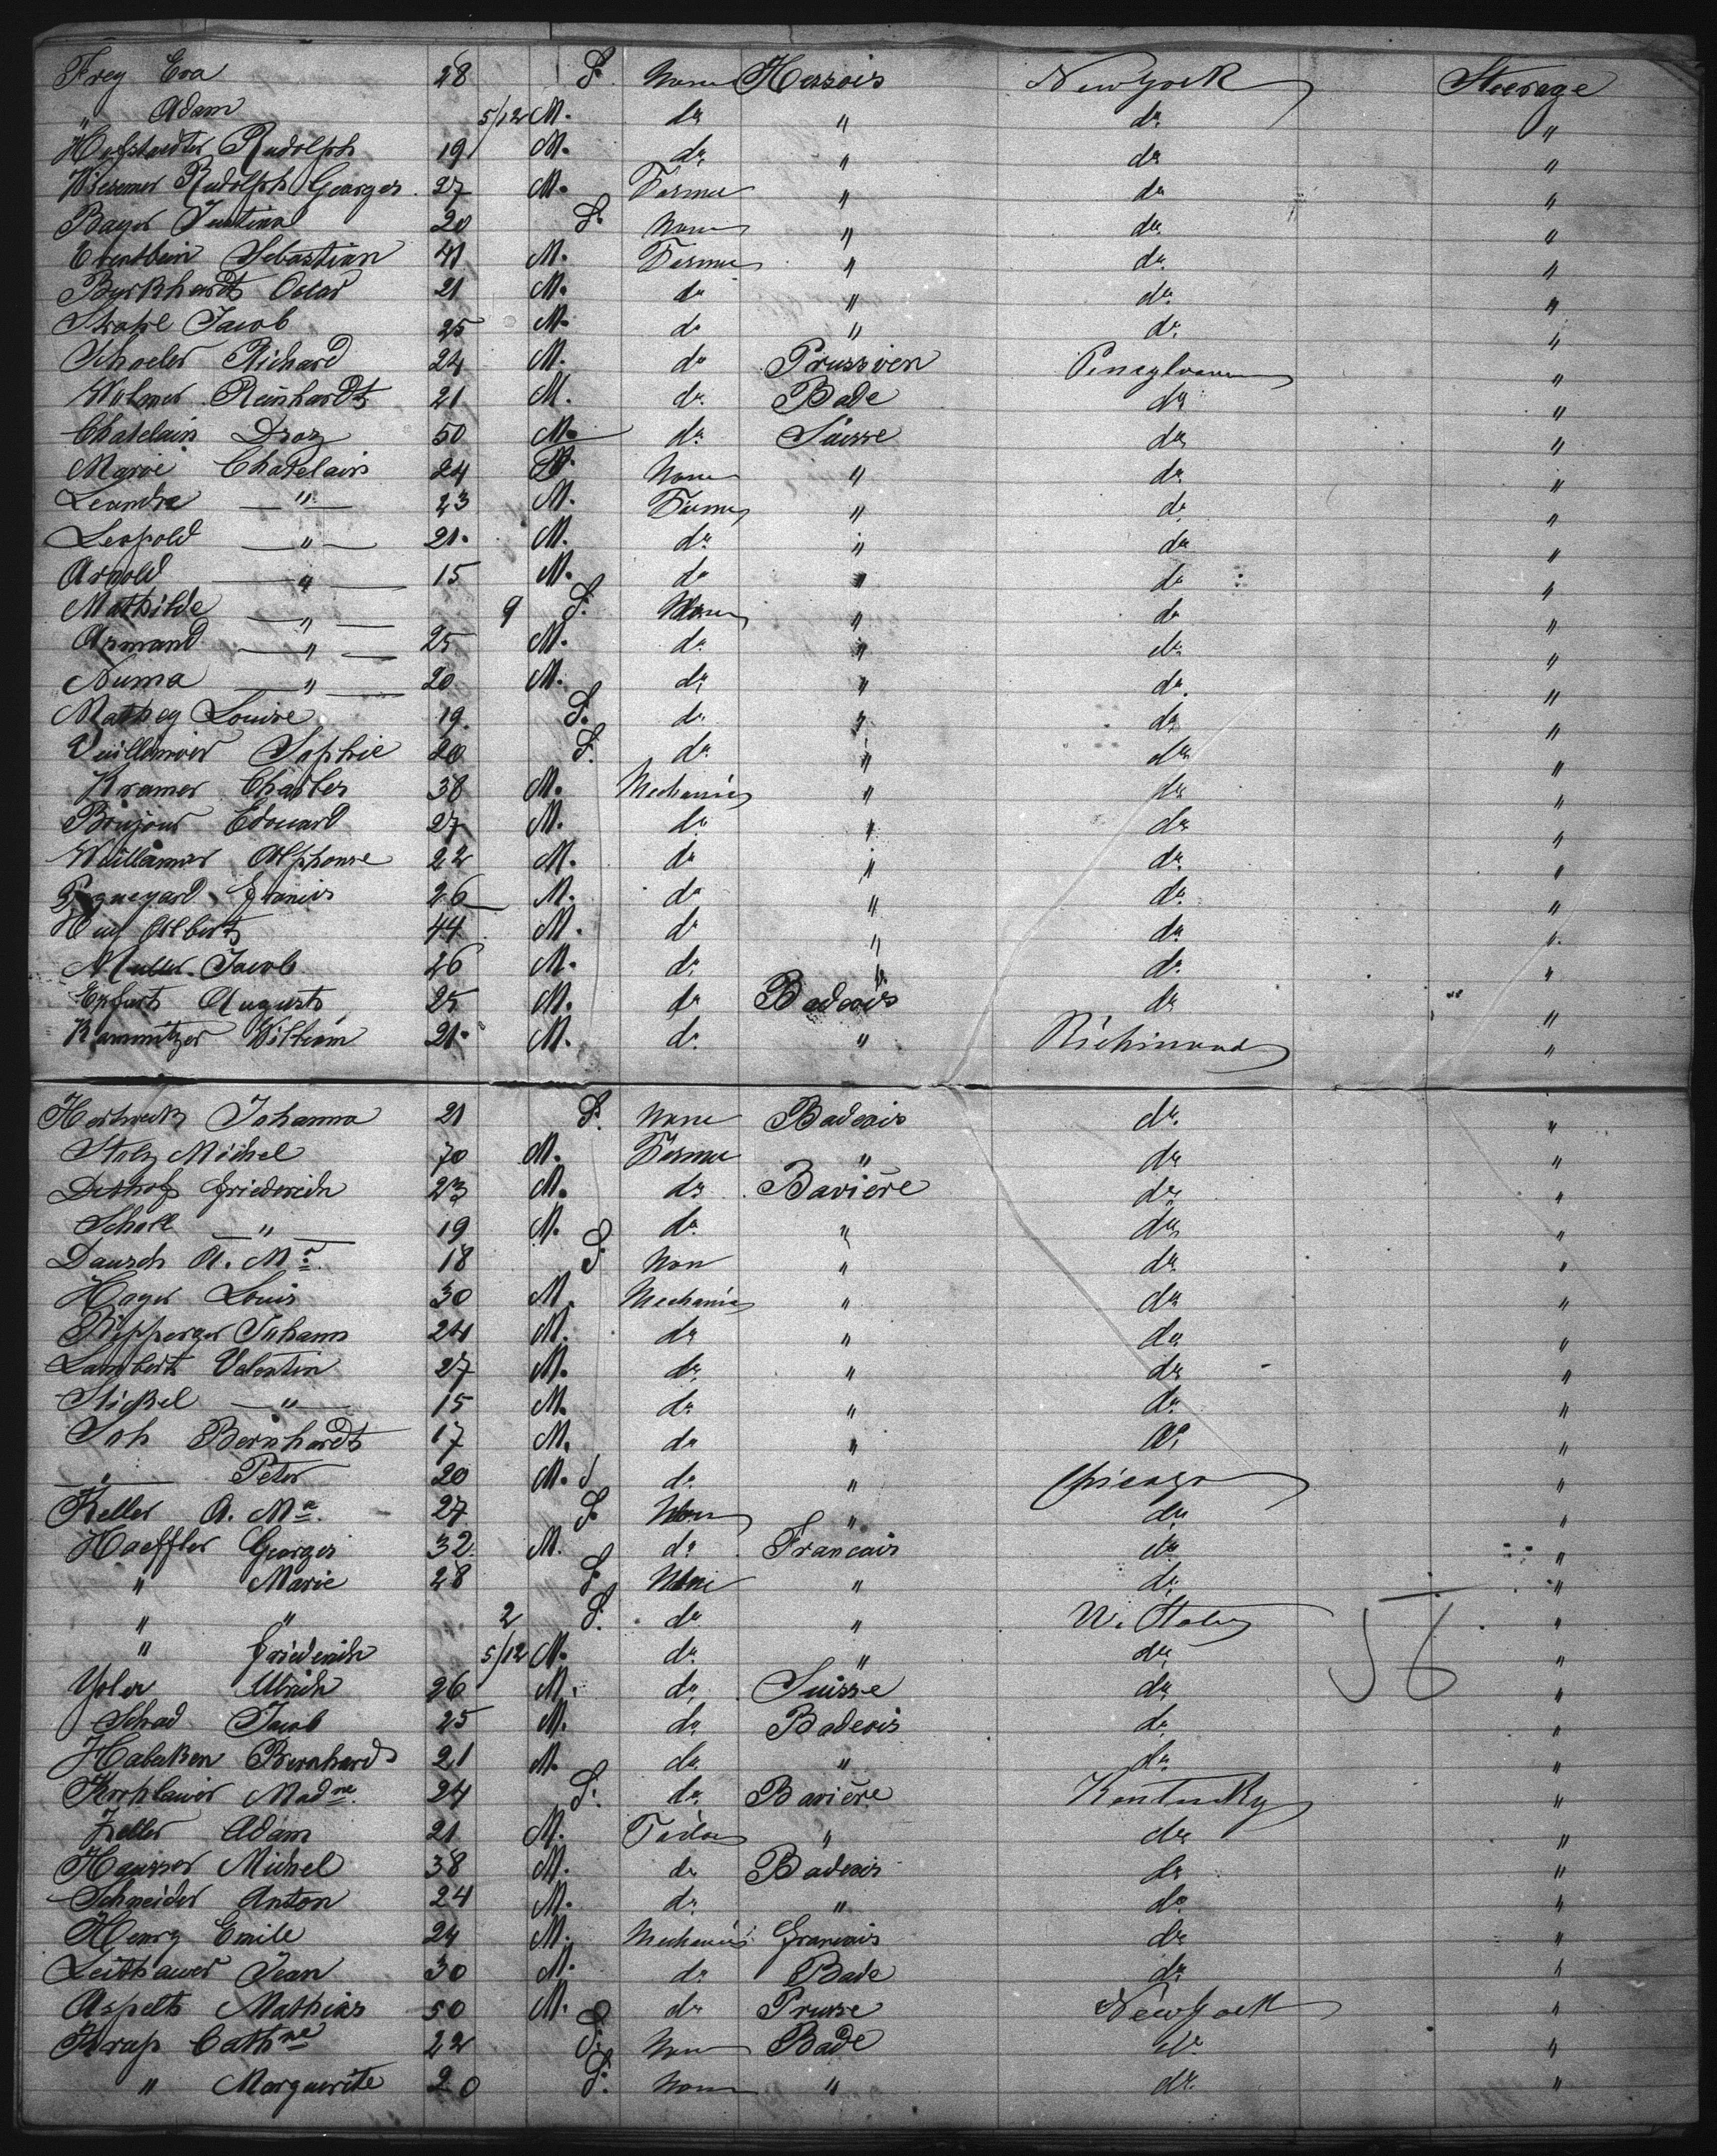 Frey Eva 28 F. None Hessois New York Steerage
" Adam 5/12 M. do " do "
Rudolph 19 M. do " do "
Rudolph Georges 27 M. Farmer " do "
Bayer Justina 20 F. None " do "
Sebastian 41 M. Farmer " do "
Burkhardt Oscar 21 M. do " do "
Strohl Jacob 25 M. do " do "
Schoeler Richard 24 M. do Prussien "
Wolmer Reinhardt 21 M. do Bade do "
Chatelain Droz 50 M. do Suisse do "
Marie Chatelain 24 None " do "
Leandre " 23 M. Farmer " do "
Leopold " 21 M. do " do "
Arnold " 15 M. do " do "
Mathilde " 9 F. None " do "
Armand " 25 M. do " do "
Numa " 20 M. do " do "
Mathey Louise 19 F. do " do "
Sophie 20 F. do " do "
Kramer Charles 38 M. Mechanic " do "
Edouard 27 M. do " do "
Alphonse 22 M. do " do "
Francis 26 M. do " do "
Albert 44 M. do " do "
Muller Jacob 26 M. do " do "
Erfurt August 25 M. do Badois do "
William 21 M. do " Richmond "
Johanna 21 F. None Badois do "
Stolz Michel 70 M. Farmer " do "
Friederich 23 M. do Bavière do "
Scholl " 19 M. do " do "
Dausch A. Ma. 18 F. Non " do "
Hoger Louis 30 M. Mechanic " do "
Ripperger Johann 24 M. do " do "
Lambert Valentin 27 M. do " do "
Stickel " 15 M. do " do "
Joh Bernhardt 17 M. do " do "
" Peter 20 M. do " Chicago "
Keller A. Ma. 27 F. None " do "
Haeffler Georges 32 M. do Francais do "
" Marie 28 F. None " do "
" " 2 F. do " U. States "
" Friederich 5/12 M. do " do "
Ulrich 26 M. do Suisse do "
Schad Jacob 25 M. do Badois do "
Bernhard 21 M. do " do "
Madne 24 F. do Bavière Kentucky "
Keller Adam 21 M. Tailor " do "
Hausser Michel 38 M. do Badois do "
Schneider Anton 24 M. do " do "
Henry Emile 24 M. Mechanic Francais do "
Jean 30 M. do Bade do "
Aspelt Mathias 50 M. do Prusse New York "
Krap Cathne 22 F. None Bade do "
" Marguerite 20 F. None " do "
56